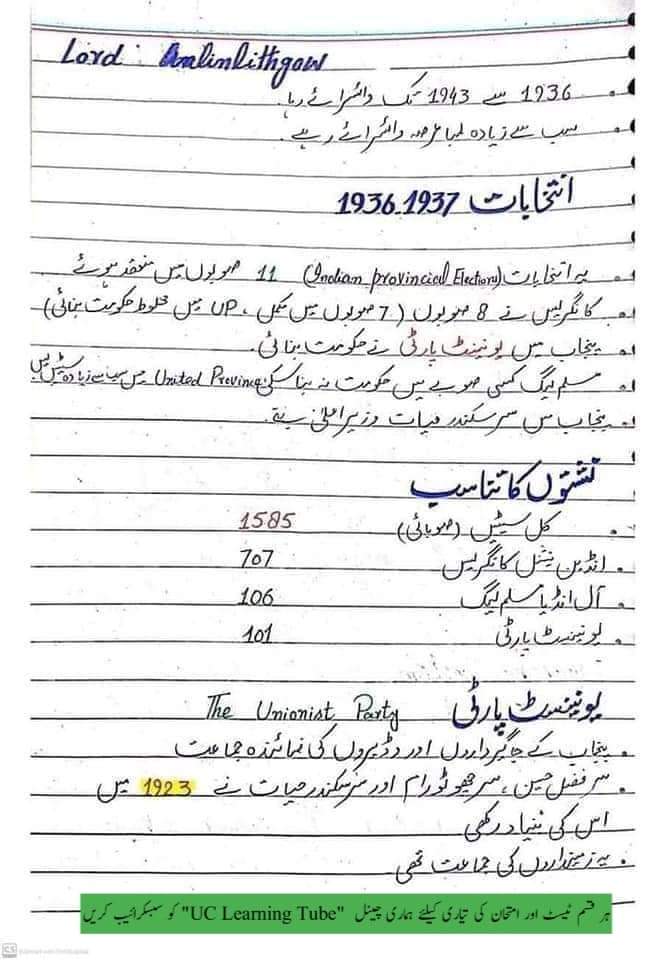 Lord : Linlithgow
1936 سے 1943 تک وائسرائے رہا۔
سب سے زیادہ لمبا عرصہ وائسرائے رہے۔
انتخابات 1937-1936
یہ انتخابات (Indian provincial Elections) 11 صوبوں میں منعقد ہوئے
کانگریس نے 8 صوبوں (7 صوبوں میں مکمل، UP میں مخلوط حکومت بنائی)
پنجاب میں یونینسٹ پارٹی نے حکومت بنائی۔
مسلم لیگ کسی صوبے میں حکومت نہ بنا سکی United Province میں سب سے زیادہ سیٹیں لیں
پنجاب میں سر سکندر حیات وزیر اعلیٰ بنے۔
نشستوں کا تناسب
کل سیٹیں (صوبائی) 1585
انڈین نیشنل کانگریس 707
آل انڈیا مسلم لیگ 106
یونینسٹ پارٹی 101
یونینسٹ پارٹی The Unionist Party
پنجاب کے جاگیرداروں اور وڈیروں کی نمائندہ جماعت
سر فضل حسین، سر چھوٹو رام اور سر سکندر حیات نے 1923 میں
اس کی بنیاد رکھی
یہ زمینداروں کی جماعت تھی
ہر قسم ٹیسٹ اور امتحان کی تیاری کیلئے ہماری چینل "UC Learning Tube" کو سبسکرائیب کریں
CS